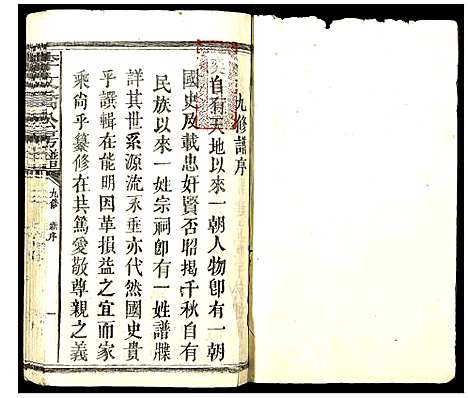 九修譜序
自有天地以來一朝人物卽有一朝
國史及載忠奸賢否昭揭千秋自有
民族以來一姓宗祠卽有一姓譜牒
詳其世系源流永垂亦代然國史貴
乎譔輯在能明因革損益之宜而家
乘尚乎纂修在共篤愛敬尊親之義
九修
序
一